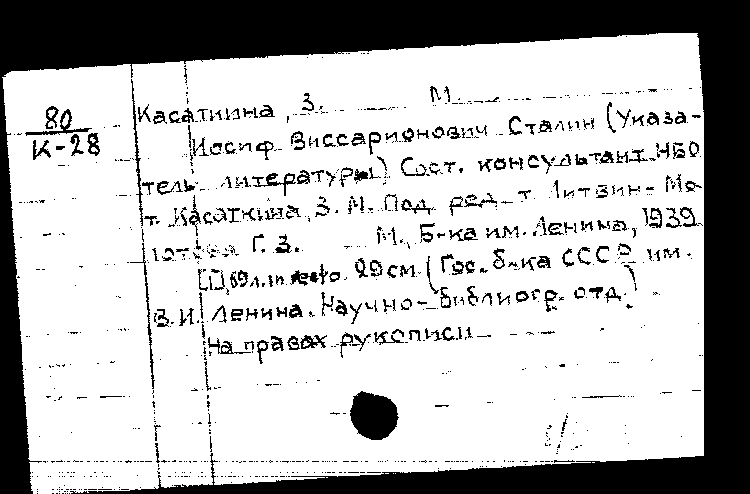 80
К-28
Касаткина, З. М.
Иосиф Виссарионович Сталин (Указа-
тель литературы) Сост. консультант НБО
т. Касаткина, З. М. Под ред. т. Литвин-Мо-
лотова Г. З. М., Б-ка им. Ленина, 1939
[1], 69 л. 29 см (Гос. б-ка СССР им.
В. И. Ленина. Научно-библиогр. отд.)
На правах рукописи